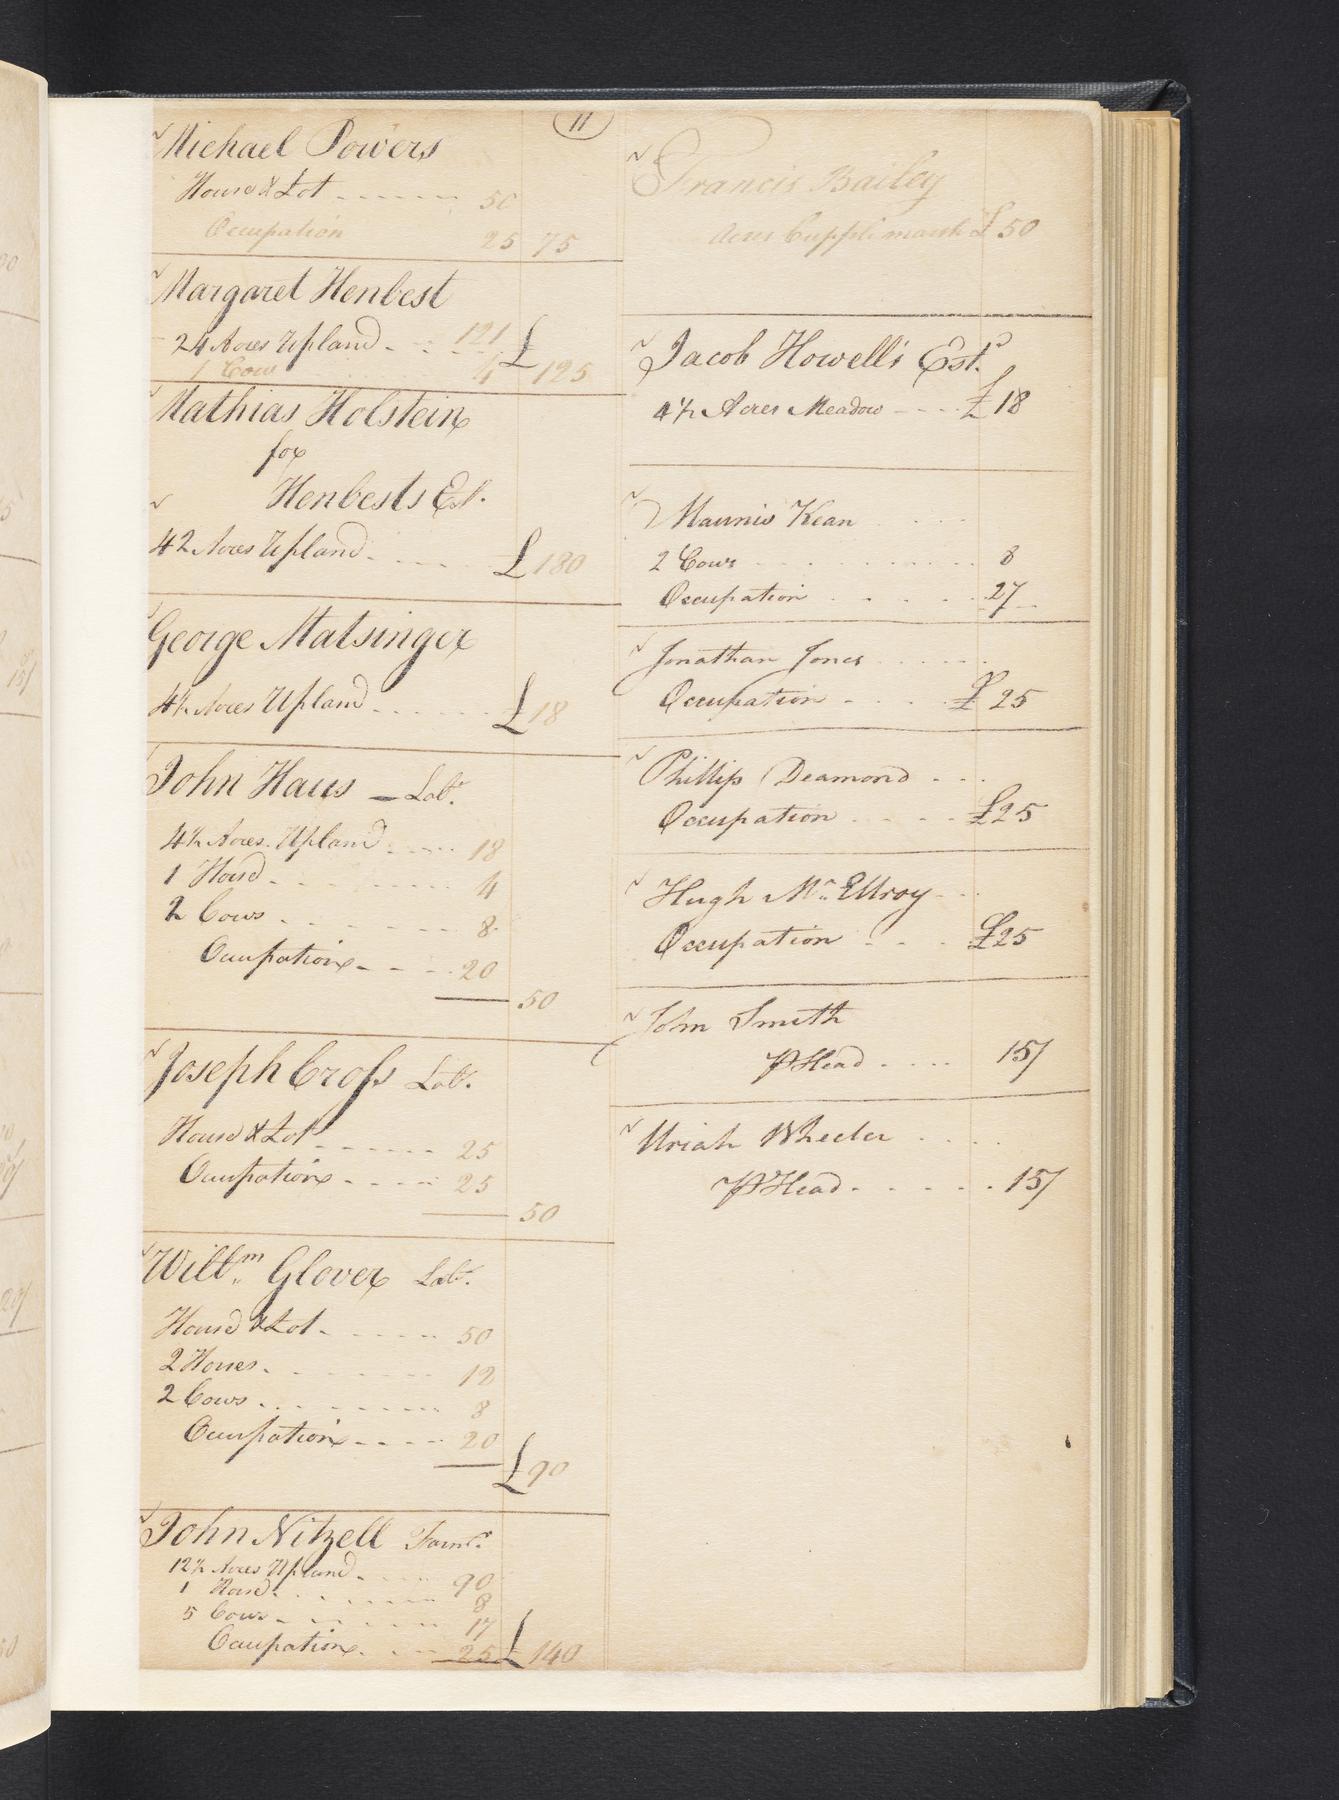 11
Michael Powers
House & Lot ------ 50
Occupation 25 75
Margaret Henbest
24 Acres Upland - 121
1 Cow 4 £ 125
Mathias Holstein
for
Henbests Est.
42 Acres Upland - £ 180
George Matsinger
4½ Acres Upland ------ £ 18
John Haus - Labr.
4½ Acres Upland ---- 18
1 Horse - 4
2 Cows - 8
Occupation - - - - 20
50
Joseph Cross Labr.
House & Lot ------ 25
Occupation ---- 25
50
Willm. Glover Labr.
House & Lot ------ 50
2 Horses - 12
2 Cows - 8
Occupation ---- 20
£ 90
John Nitzell Farmr.
12½ Acres Upland ---- 90
1 Horse - 8
5 Cows - 17
Occupation - 25 £ 140
Francis Bailey
Acres £ 50
Jacob Howell's Estr.
4½ Acres Meadow ---- £ 18
Maunis Kean
2 Cows 8
Occupation 27
Jonathan Jones
Occupation - £ 25
Phillip Deamond - - -
Occupation £ 25
Hugh Mc. Ellroy - - -
Occupation - - - £ 25
John Smith
P Head - - - - 15/
Uriah Wheeler
P Head - - - - 15/